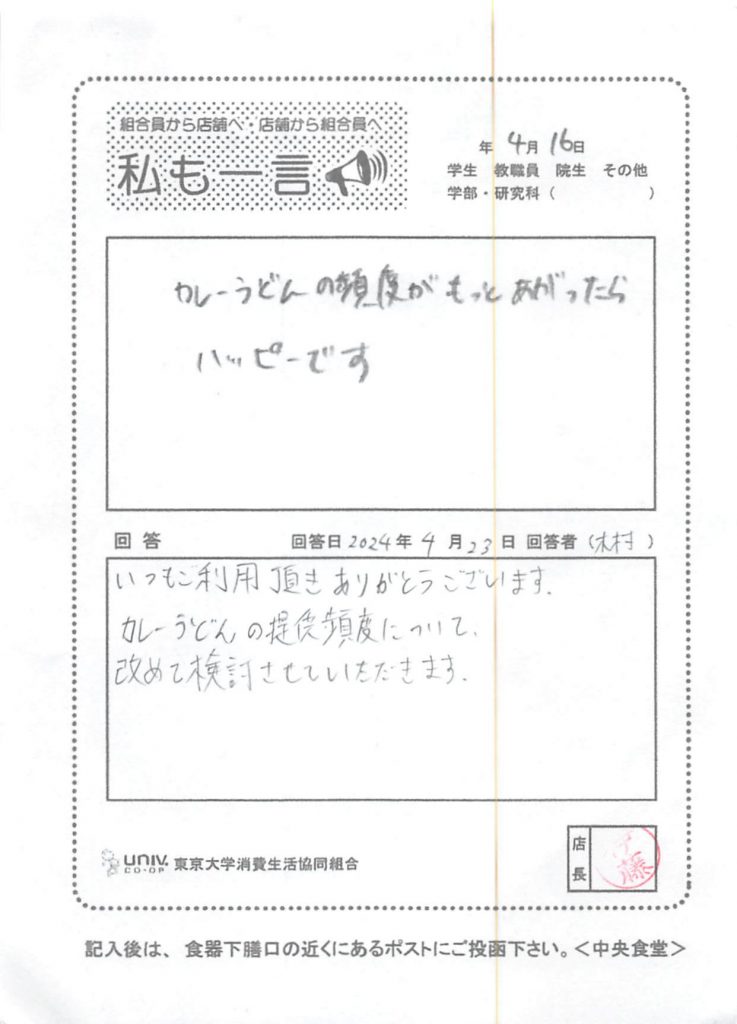 組合員から店舗へ・店舗から組合員へ
私も一言
年 4月 16日
学生 教職員 院生 その他
学部・研究科（ ）
カレーうどんの頻度がもっとあがったら
ハッピーです
回答 回答日 2024年 4月 23日 回答者（木村）
いつもご利用頂きありがとうございます.
カレーうどんの提供頻度について、
改めて検討させていただきます.
UNIV. CO-OP 東京大学消費生活協同組合
店長
藤
記入後は、食器下膳口の近くにあるポストにご投函下さい。＜中央食堂＞